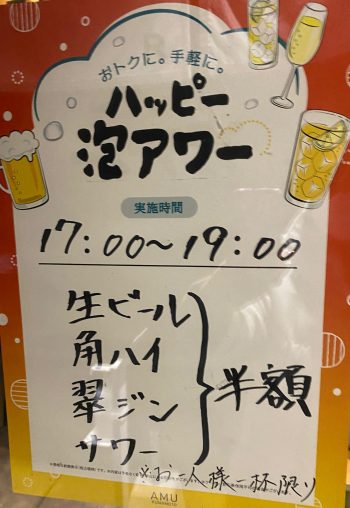 おトクに。手軽に。
ハッピー
泡アワー
実施時間
17:00~19:00
生ビール
角ハイ
翠ジン
サワー
半額
※お一人様一杯限り
AMU